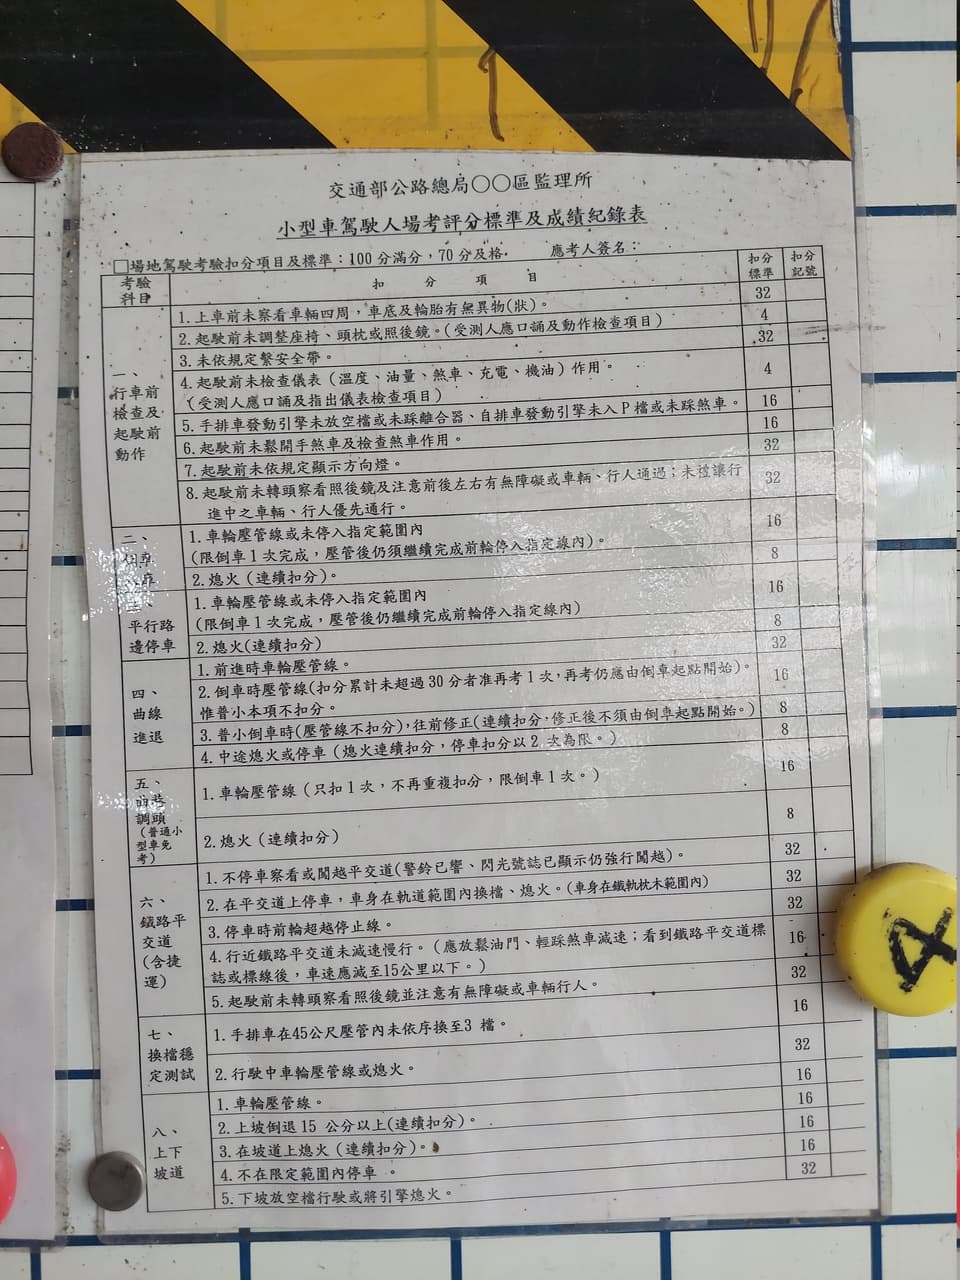 交通部公路總局○○區監理所
小型車駕駛人場考評分標準及成績紀錄表
□場地駕駛考驗扣分項目及標準：100分滿分，70分及格． 應考人簽名：
考驗科目 扣分項目 扣分標準 扣分記號
一、行車前檢查及起駛前動作
1.上車前未察看車輛四周，車底及輪胎有無異物(狀)。 32
2.起駛前未調整座椅、頭枕或照後鏡。(受測人應口誦及動作檢查項目) 4
3.未依規定繫安全帶。 32
4.起駛前未檢查儀表（溫度、油量、煞車、充電、機油）作用。 4
（受測人應口誦及指出儀表檢查項目）
5.手排車發動引擎未放空檔或未踩離合器、自排車發動引擎未入P檔或未踩煞車。 16
6.起駛前未鬆開手煞車及檢查煞車作用。 16
7.起駛前未依規定顯示方向燈。 32
8.起駛前未轉頭察看照後鏡及注意前後左右有無障礙或車輛、行人通過；未禮讓行 32
進中之車輛、行人優先通行。
二、
1.車輪壓管線或未停入指定範圍內 16
(限倒車1次完成，壓管後仍須繼續完成前輪停入指定線內)。
2.熄火（連續扣分）。 8
平行路邊停車
1.車輪壓管線或未停入指定範圍內 16
(限倒車1次完成，壓管後仍繼續完成前輪停入指定線內)
2.熄火(連續扣分) 8
四、曲線進退
1.前進時車輪壓管線。 32
2.倒車時壓管線(扣分累計未超過30分者准再考1次，再考仍應由倒車起點開始)。 16
惟普小本項不扣分。
3.普小倒車時(壓管線不扣分)，往前修正(連續扣分，修正後不須由倒車起點開始。) 8
4.中途熄火或停車（熄火連續扣分，停車扣分以2次為限。） 8
五、曲巷調頭（普通小型車免考）
1.車輪壓管線（只扣1次，不再重複扣分，限倒車1次。） 16
2.熄火（連續扣分） 8
六、鐵路平交道（含捷運）
1.不停車察看或闖越平交道(警鈴已響、閃光號誌已顯示仍強行闖越)。 32
2.在平交道上停車，車身在軌道範圍內換檔、熄火。(車身在鐵軌枕木範圍內) 32
3.停車時前輪超越停止線。 32
4.行近鐵路平交道未減速慢行。（應放鬆油門、輕踩煞車減速；看到鐵路平交道標 16
誌或標線後，車速應減至15公里以下。）
5.起駛前未轉頭察看照後鏡並注意有無障礙或車輛行人。 32
七、換檔穩定測試
1.手排車在45公尺壓管內未依序換至3 檔。 16
2.行駛中車輪壓管線或熄火。 32
八、上下坡道
1.車輪壓管線。 16
2.上坡倒退15 公分以上(連續扣分)。 16
3.在坡道上熄火（連續扣分）。 16
4.不在限定範圍內停車 。 16
5.下坡放空檔行駛或將引擎熄火。 32
4